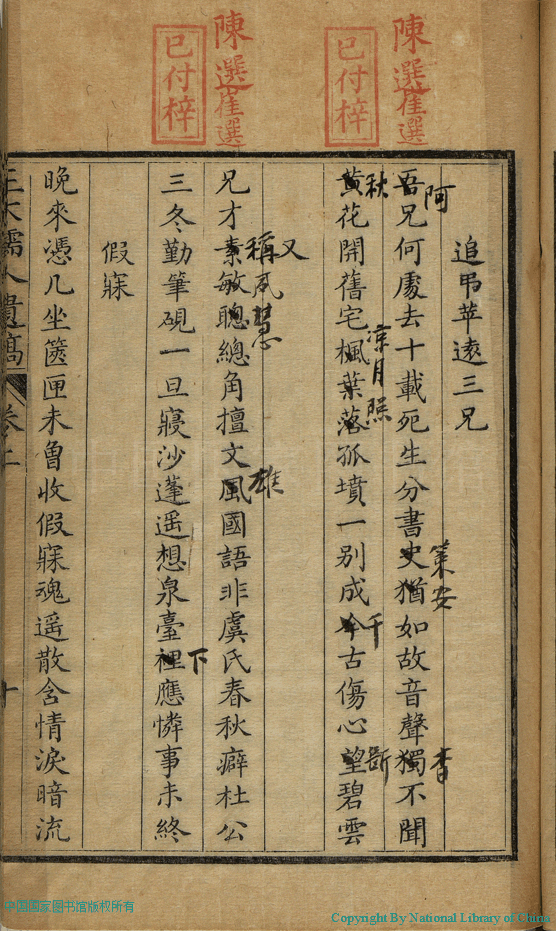 陳選
崔選
已付梓
陳選
崔選
已付梓
追弔苹遠三兄
阿 策安 杳
吾兄何處去十載死生分書史猶如故音聲獨不聞
秋 涼月照 千 斷
黃花開舊宅楓葉落孤墳一別成今古傷心望碧雲
又
稱夙慧 雄
兄才素敏聰總角擅文風國語非虞氏春秋癖杜公
下
三冬勤筆硯一旦寢沙蓬遥想泉臺裡應憐事未終
假寐
晚來憑几坐篋匣未曾收假寐魂遥散含情淚暗流
人遺稿
十
中国国家图书馆版权所有
Copyright By National Library of China